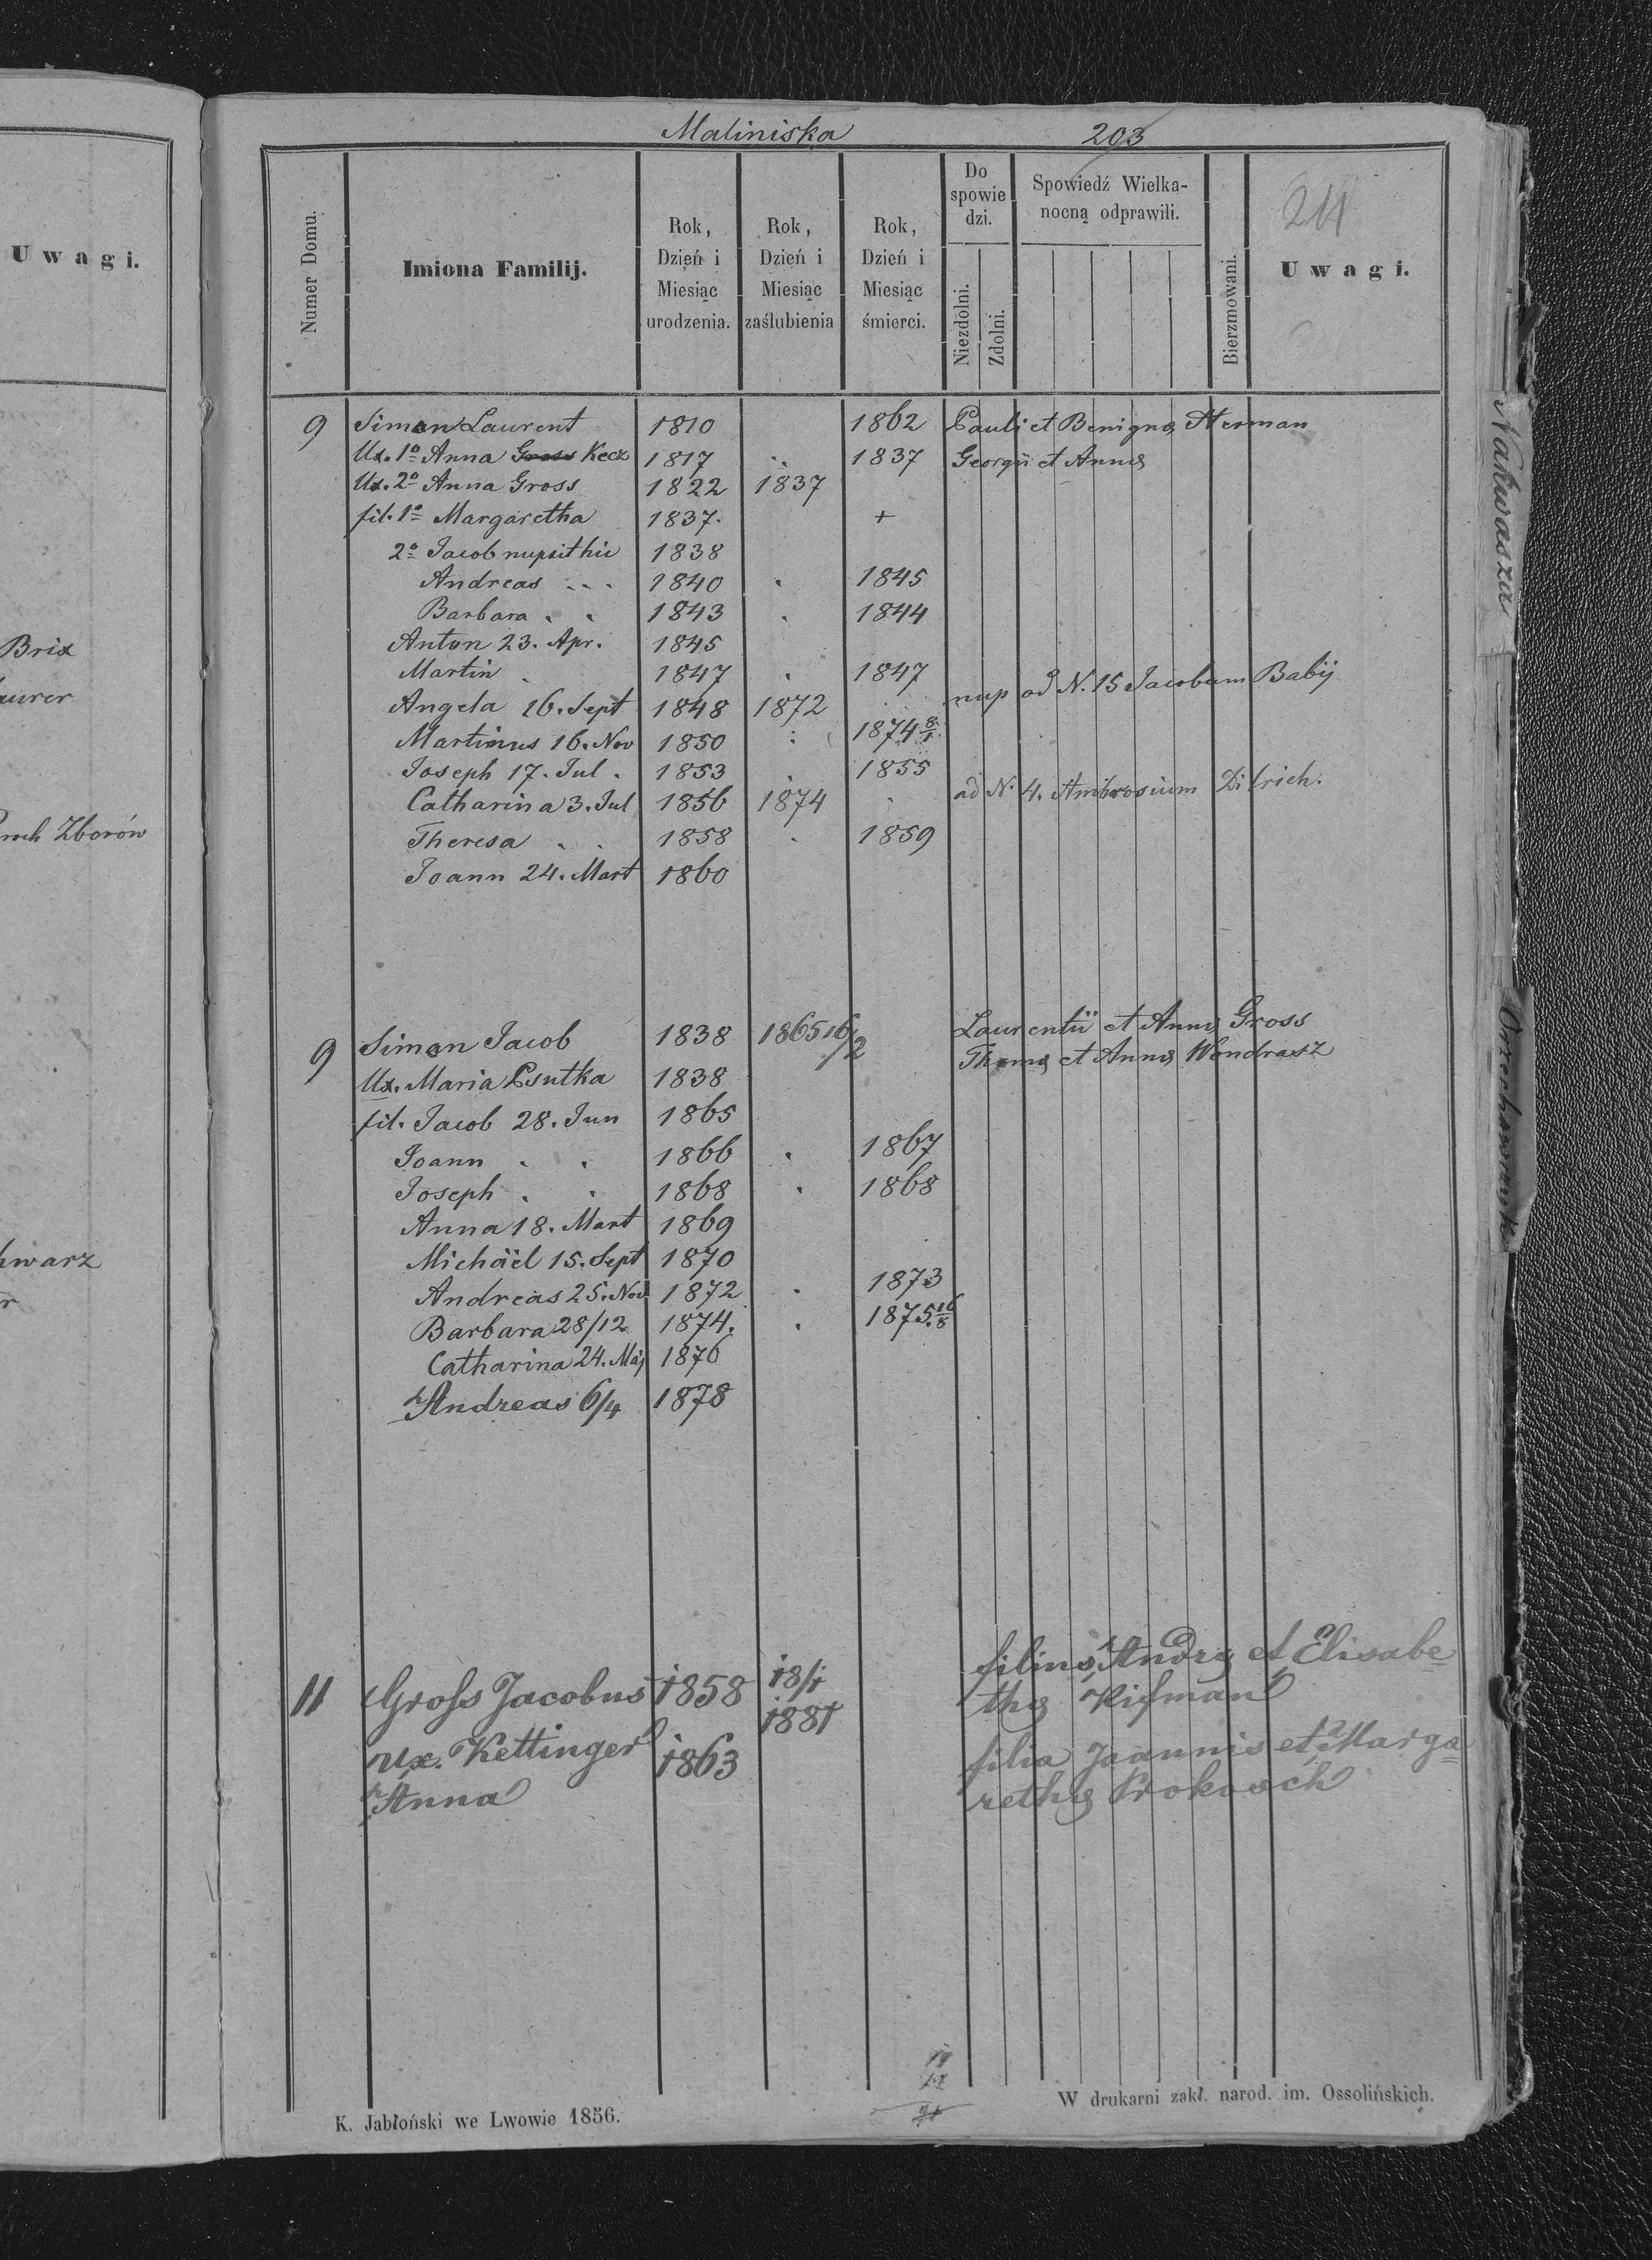 Uwagi.
Brix
aurer
Zborów
hwarz
r
Maliniska 203
Numer Domu.
Imiona Familij.
Rok, Dzień i Miesiąc urodzenia.
Rok, Dzień i Miesiąc zaślubienia
Rok, Dzień i Miesiąc śmierci.
Do spowiedzi.
Niezdolni.
Zdolni.
Spowiedź Wielkanocną odprawili.
Bierzmowani.
211
Uwagi.
9 Simon Laurent 1810 1862 Pauli et Benignæ Herman
Ux. 1º Anna Gross Kecz 1817 1837 Georgii et Annæ
Ux. 2º Anna Gross 1822 1837
fil. 1º Margaretha 1837. +
2º Jacob nupsit hic 1838
Andreas 1840 1845
Barbara 1843 1844
Anton 23. Apr. 1845
Martin 1847 1847
Angela 16. Sept 1848 1872 nup ad N. 15 Jacobum Babij
Martinus 16. Nov 1850 1874 8/1
Joseph 17. Jul. 1853 1855
Catharina 3. Jul 1856 1874 ad N. 4. Ambrosium Ditrich.
Theresa 1858 1859
Joann 24. Mart 1860
9 Simon Jacob 1838 1865 16/2 Laurentii et Annæ Gross
Ux. Maria Psutka 1838 Thomæ et Annæ Wondrasz
fil. Jacob 28. Jun 1865
Joann 1866 1867
Joseph 1868 1868
Anna 18. Mart 1869
Michäel 15. Sept 1870
Andreas 25. Nov 1872 1873
Barbara 28/12 1874. 1875 16/8
Catharina 24. Maj 1876
Andreas 6/4 1878
11 Groſs Jacobus 1858 18/1 1881 filius Andræ et Elisabe=
thæ Kiſman
ux. Kettinger 1863 filia Joannis et Marga=
Anna rethæ Prokosch
K. Jabłoński we Lwowie 1856.
W drukarni zakł. narod. im. Ossolińskich.
Nakwasza